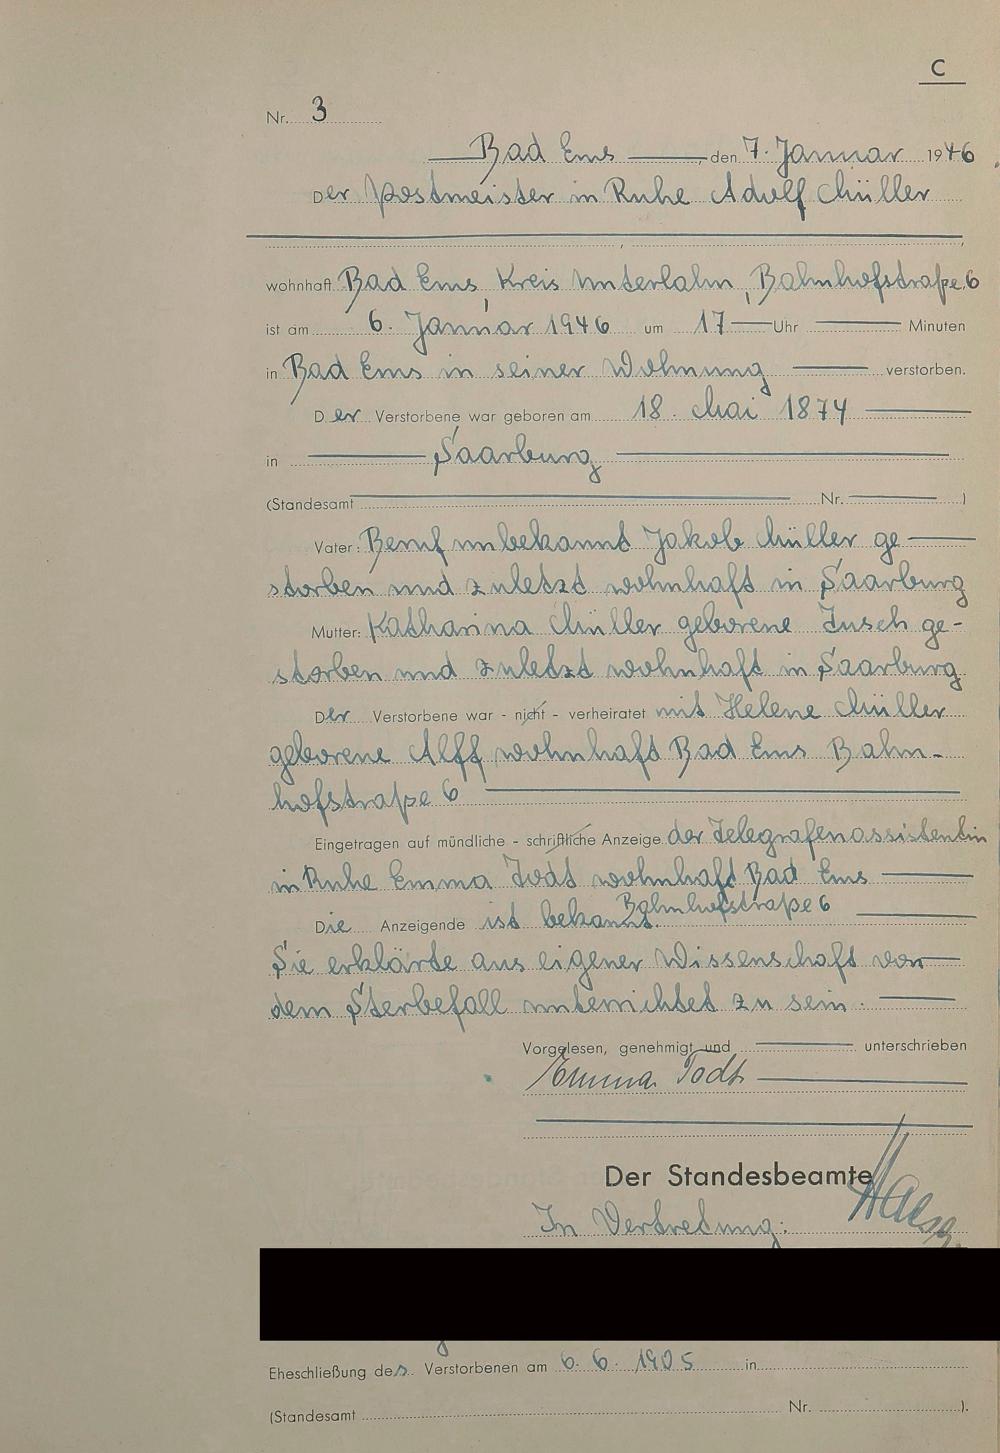 C
Nr. 3
Bad Ems, den 7. Januar 1946
Der Postmeister in Ruhe Adolf Müller
wohnhaft Bad Ems, Kreis Unterlahn, Bahnhofstraße 6
ist am 6. Januar 1946 um 17 Uhr Minuten
in Bad Ems in seiner Wohnung verstorben.
Der Verstorbene war geboren am 18. Mai 1874
in Saarburg
(Standesamt Nr. )
Vater: Beruf unbekannt Jakob Müller ge-
storben und zuletzt wohnhaft in Saarburg
Mutter: Katharina Müller geborene ge-
storben und zuletzt wohnhaft in Saarburg
Der Verstorbene war - nicht - verheiratet mit Helene Müller
geborene Alff wohnhaft Bad Ems Bahn-
hofstraße 6
Eingetragen auf mündliche - schriftliche Anzeige der Telegrafenassistentin
in Ruhe Emma Todt wohnhaft Bad Ems
Bahnhofstraße 6
Die Anzeigende ist bekannt.
Sie erklärte aus eigener Wissenschaft von
dem Sterbefall unterrichtet zu sein.
Vorgelesen, genehmigt und unterschrieben
Emma Todt
Der Standesbeamte
In Vertretung:
Eheschließung des Verstorbenen am 6.6.1905 in
(Standesamt Nr. ).